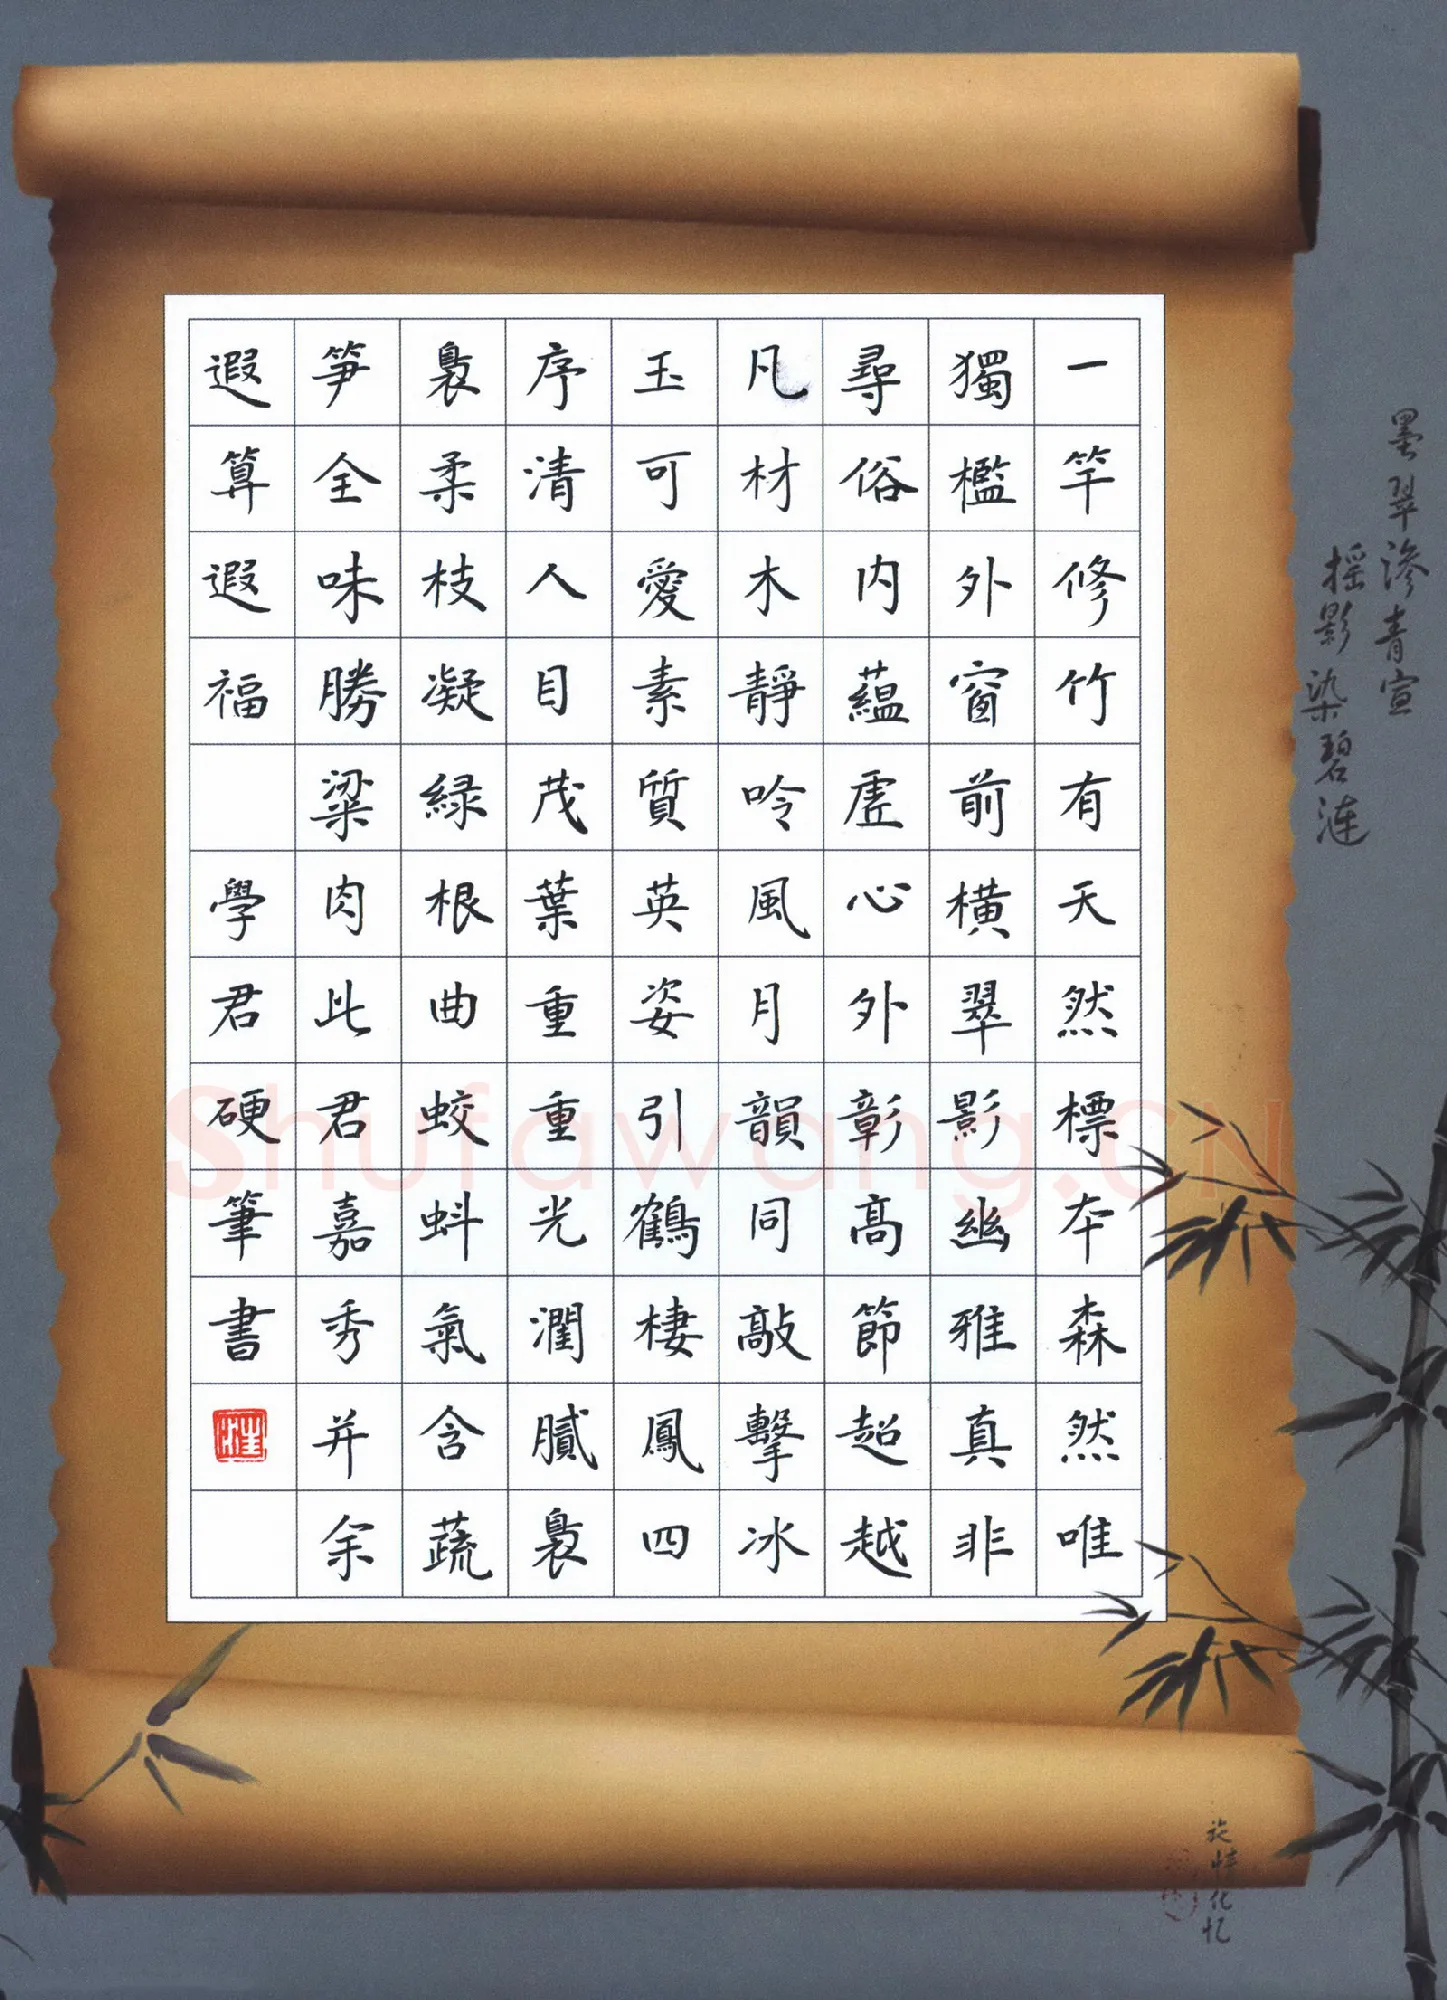 一竿修竹有天然標本森然唯
獨檻外窗前橫翠影幽雅真非
尋俗內蘊虛心外彰高節超越
凡材木靜吟風月韻同敲擊冰
玉可愛素質英姿引鶴棲鳳四
序清人目茂葉重重光潤膩裊
裊柔枝凝綠根曲蛟蚪氣含蔬
笋全味勝粱肉此君嘉秀并余
遐算遐福 學君硬筆書
墨翠滲青宣
搖影染碧漣
Shufawang.CN